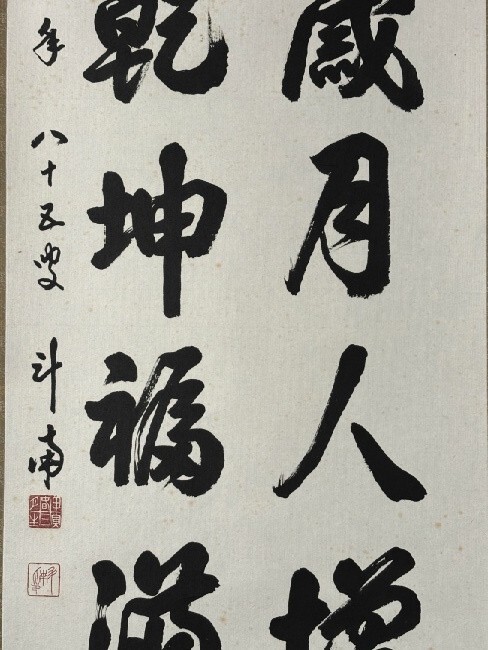 歲月人增
乾坤福滿
年 八十五叟 斗南